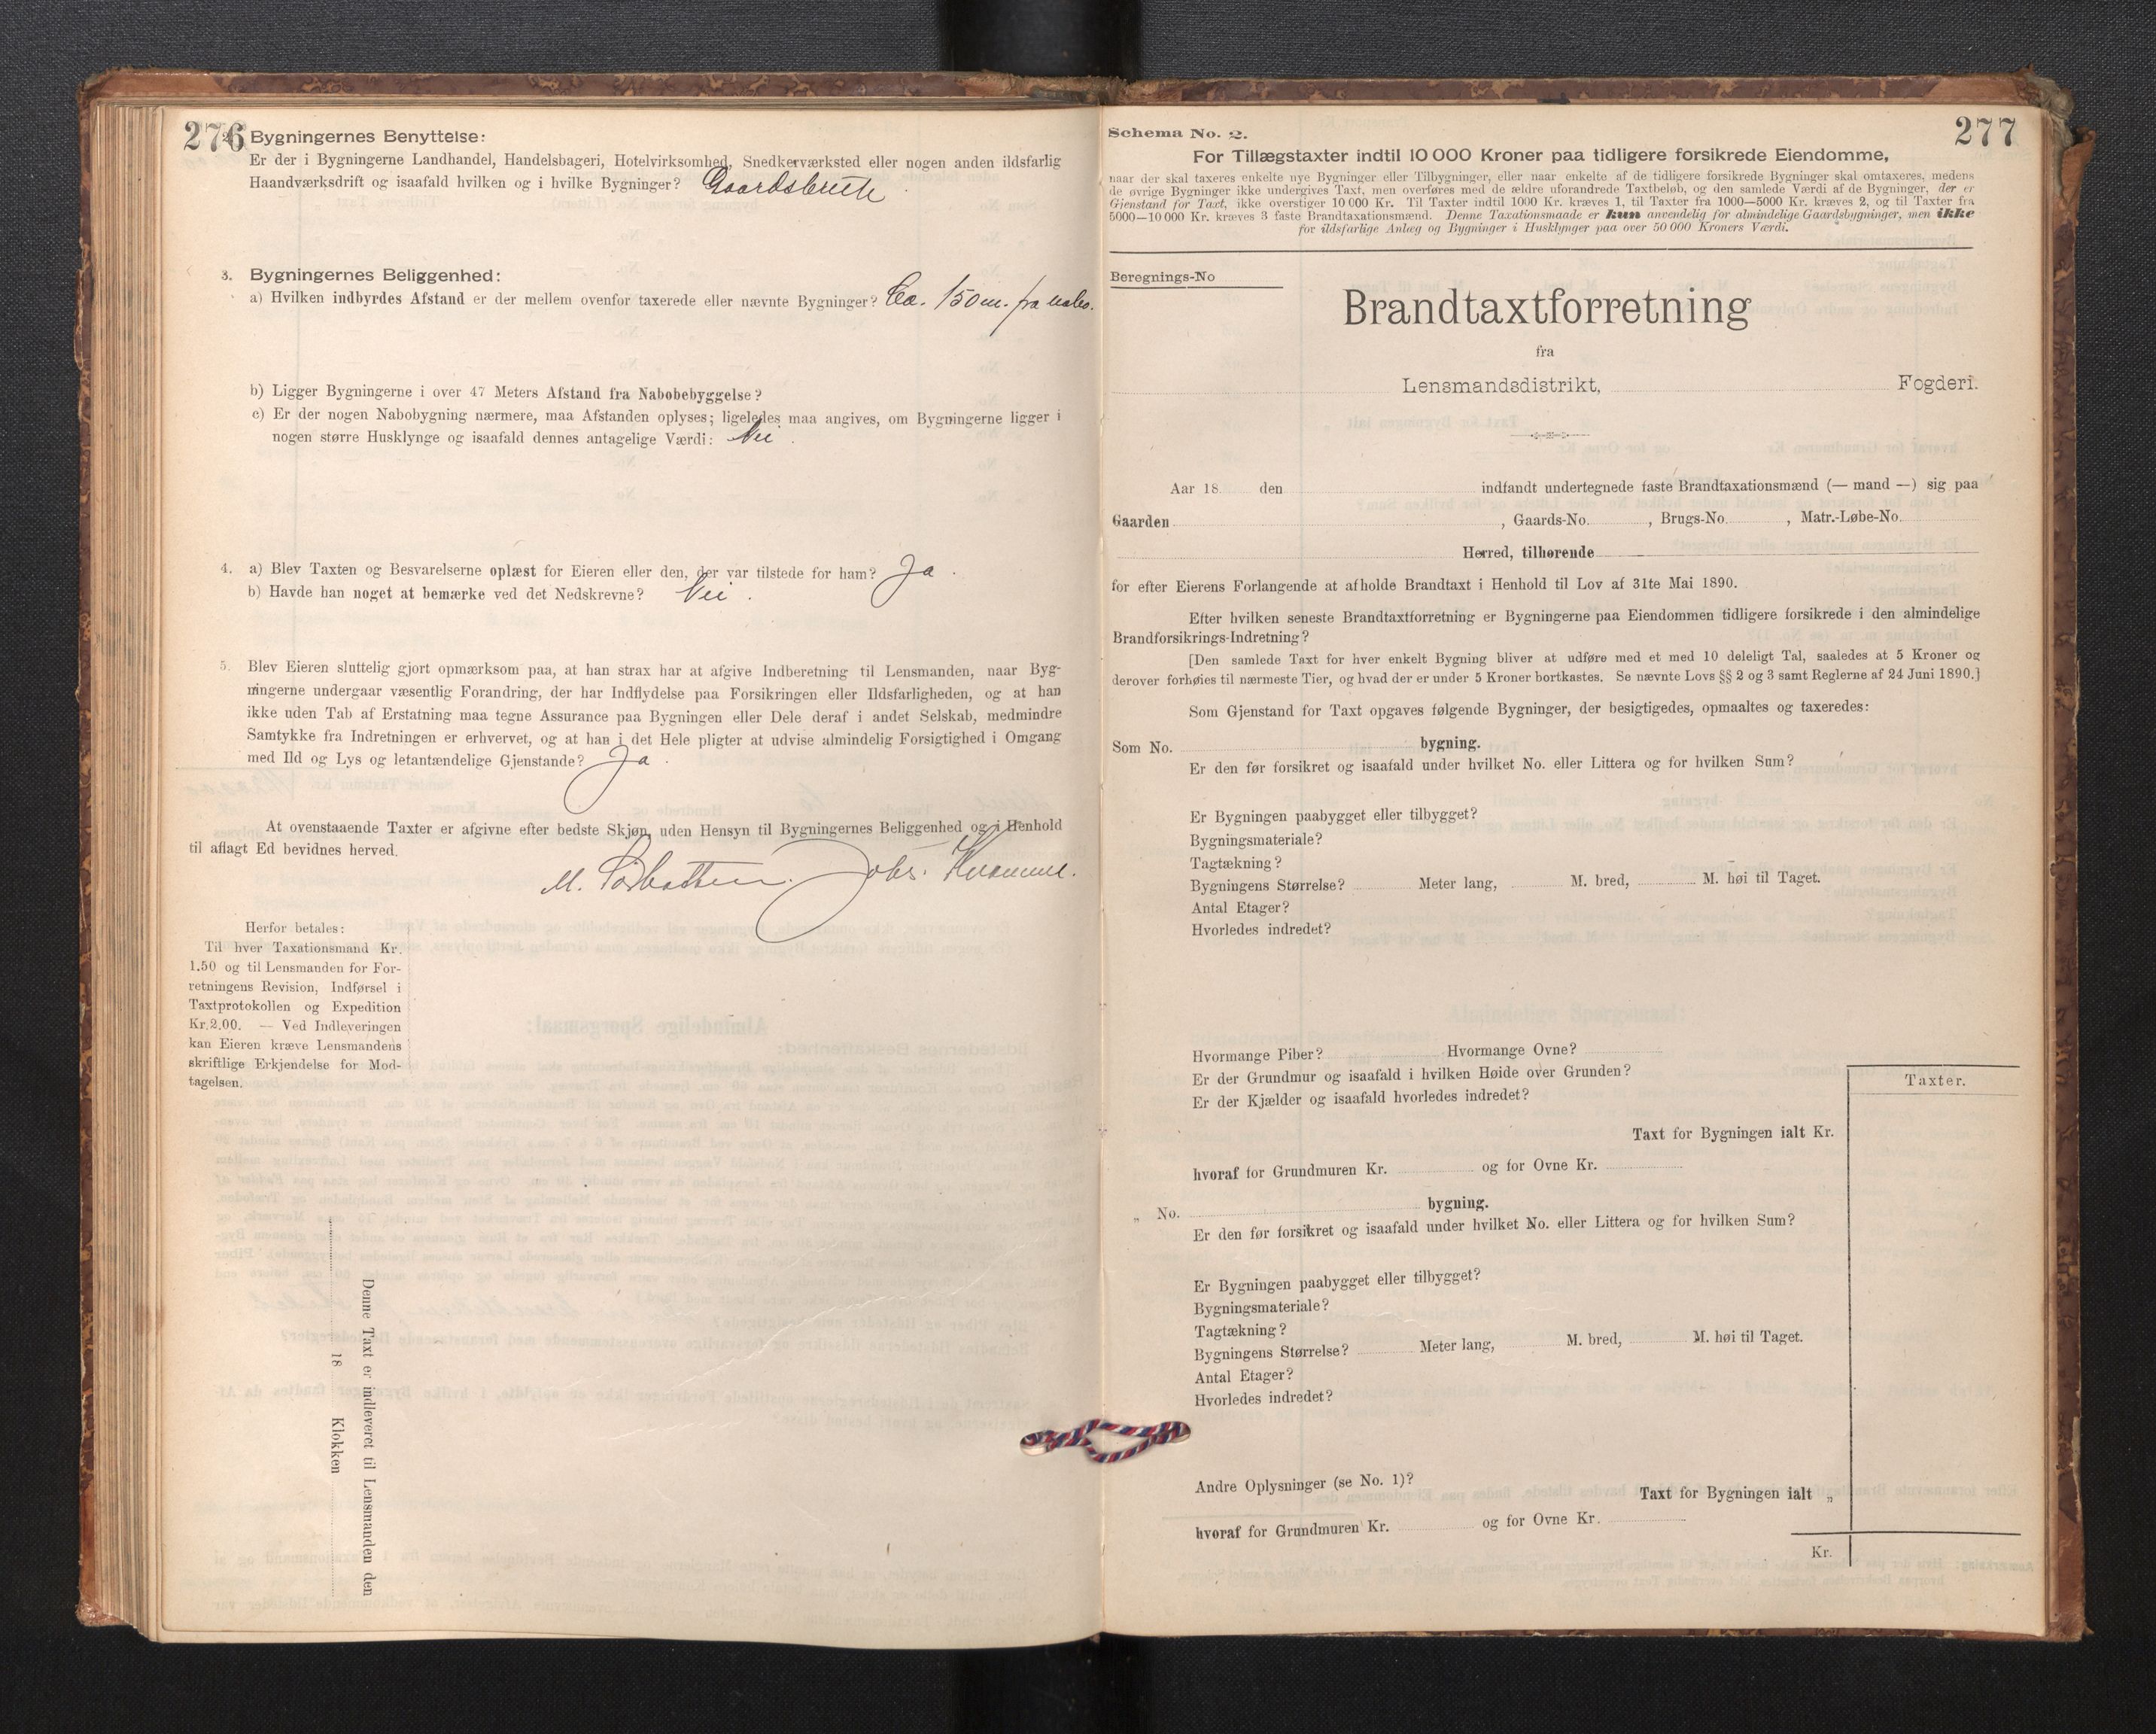 276
Bygningernes Benyttelse:
Er der i Bygningerne Landhandel, Handelsbageri, Hotelvirksomhed, Snedkerværksted eller nogen anden ildsfarlig
Haandværksdrift og isaafald hvilken og i hvilke Bygninger? Gaardsbrug
3. Bygningernes Beliggenhed:
a) Hvilken indbyrdes Afstand er der mellem ovenfor taxerede eller nævnte Bygninger? Ca. 150 m. fra nabo.
b) Ligger Bygningerne i over 47 Meters Afstand fra Nabobebyggelse?
c) Er der nogen Nabobygning nærmere, maa Afstanden oplyses; ligeledes maa angives, om Bygningerne ligger i
nogen større Husklynge og isaafald dennes antagelige Værdi: Nei.
4. a) Blev Taxten og Besvarelserne oplæst for Eieren eller den, der var tilstede for ham? Ja.
b) Havde han noget at bemærke ved det Nedskrevne? Nei.
5. Blev Eieren sluttelig gjort opmærksom paa, at han strax har at afgive Indberetning til Lensmanden, naar Byg-
ningerne undergaar væsentlig Forandring, der har Indflydelse paa Forsikringen eller Ildsfarligheden, og at han
ikke uden Tab af Erstatning maa tegne Assurance paa Bygningen eller Dele deraf i andet Selskab, medmindre
Samtykke fra Indretningen er erhvervet, og at han i det Hele pligter at udvise almindelig Forsigtighed i Omgang
med Ild og Lys og letantændelige Gjenstande? Ja.
At ovenstaaende Taxter er afgivne efter bedste Skjøn, uden Hensyn til Bygningernes Beliggenhed og i Henhold
til aflagt Ed bevidnes herved.
M. Johs. Kvamme.
Herfor betales:
Til hver Taxationsmand Kr.
1.50 og til Lensmanden for For-
retningens Revision, Indførsel i
Taxtprotokollen og Expedition
Kr. 2.00. — Ved Indleveringen
kan Eieren kræve Lensmandens
skriftlige Erkjendelse for Mod-
tagelsen.
Denne Taxt er indleveret til Lensmanden den
18 Klokken
277
Schema No. 2.
For Tillægstaxter indtil 10 000 Kroner paa tidligere forsikrede Eiendomme,
naar der skal taxeres enkelte nye Bygninger eller Tilbygninger, eller naar enkelte af de tidligere forsikrede Bygninger skal omtaxeres, medens
de øvrige Bygninger ikke undergives Taxt, men overføres med de ældre uforandrede Taxtbeløb, og den samlede Værdi af de Bygninger, der er
Gjenstand for Taxt, ikke overstiger 10 000 Kr. Til Taxter indtil 1000 Kr. kræves 1, til Taxter fra 1000—5000 Kr. kræves 2, og til Taxter fra
5000—10 000 Kr. kræves 3 faste Brandtaxationsmænd. Denne Taxationsmaade er kun anvendelig for almindelige Gaardsbygninger, men ikke
for ildsfarlige Anlæg og Bygninger i Husklynger paa over 50 000 Kroners Værdi.
Beregnings-No
Brandtaxtforretning
fra
Lensmandsdistrikt, Fogderi.
Aar 18 den indfandt undertegnede faste Brandtaxationsmænd (— mand —) sig paa
Gaarden , Gaards-No. , Brugs-No. , Matr.-Løbe-No.
Herred, tilhørende
for efter Eierens Forlangende at afholde Brandtaxt i Henhold til Lov af 31te Mai 1890.
Efter hvilken seneste Brandtaxtforretning er Bygningerne paa Eiendommen tidligere forsikrede i den almindelige
Brandforsikrings-Indretning?
[Den samlede Taxt for hver enkelt Bygning bliver at udføre med et med 10 deleligt Tal, saaledes at 5 Kroner og
derover forhøies til nærmeste Tier, og hvad der er under 5 Kroner bortkastes. Se nævnte Lovs §§ 2 og 3 samt Reglerne af 24 Juni 1890.]
Som Gjenstand for Taxt opgaves følgende Bygninger, der besigtigedes, opmaaltes og taxeredes:
Som No. bygning.
Er den før forsikret og isaafald under hvilket No. eller Littera og for hvilken Sum?
Er Bygningen paabygget eller tilbygget?
Bygningsmateriale?
Tagtækning?
Bygningens Størrelse? Meter lang, M. bred, M. høi til Taget.
Antal Etager?
Hvorledes indredet?
Hvormange Piber? Hvormange Ovne?
Er der Grundmur og isaafald i hvilken Høide over Grunden?
Er der Kjælder og isaafald hvorledes indredet?
Taxter.
Taxt for Bygningen ialt Kr.
hvoraf for Grundmuren Kr. og for Ovne Kr.
„ No. bygning.
Er den før forsikret og isaafald under hvilket No. eller Littera og for hvilken Sum?
Er Bygningen paabygget eller tilbygget?
Bygningsmateriale?
Tagtækning?
Bygningens Størrelse? Meter lang, M. bred, M. høi til Taget.
Antal Etager?
Hvorledes indredet?
Andre Oplysninger (se No. 1)?
Taxt for Bygningen ialt „
hvoraf for Grundmuren Kr. og for Ovne Kr.
Kr.